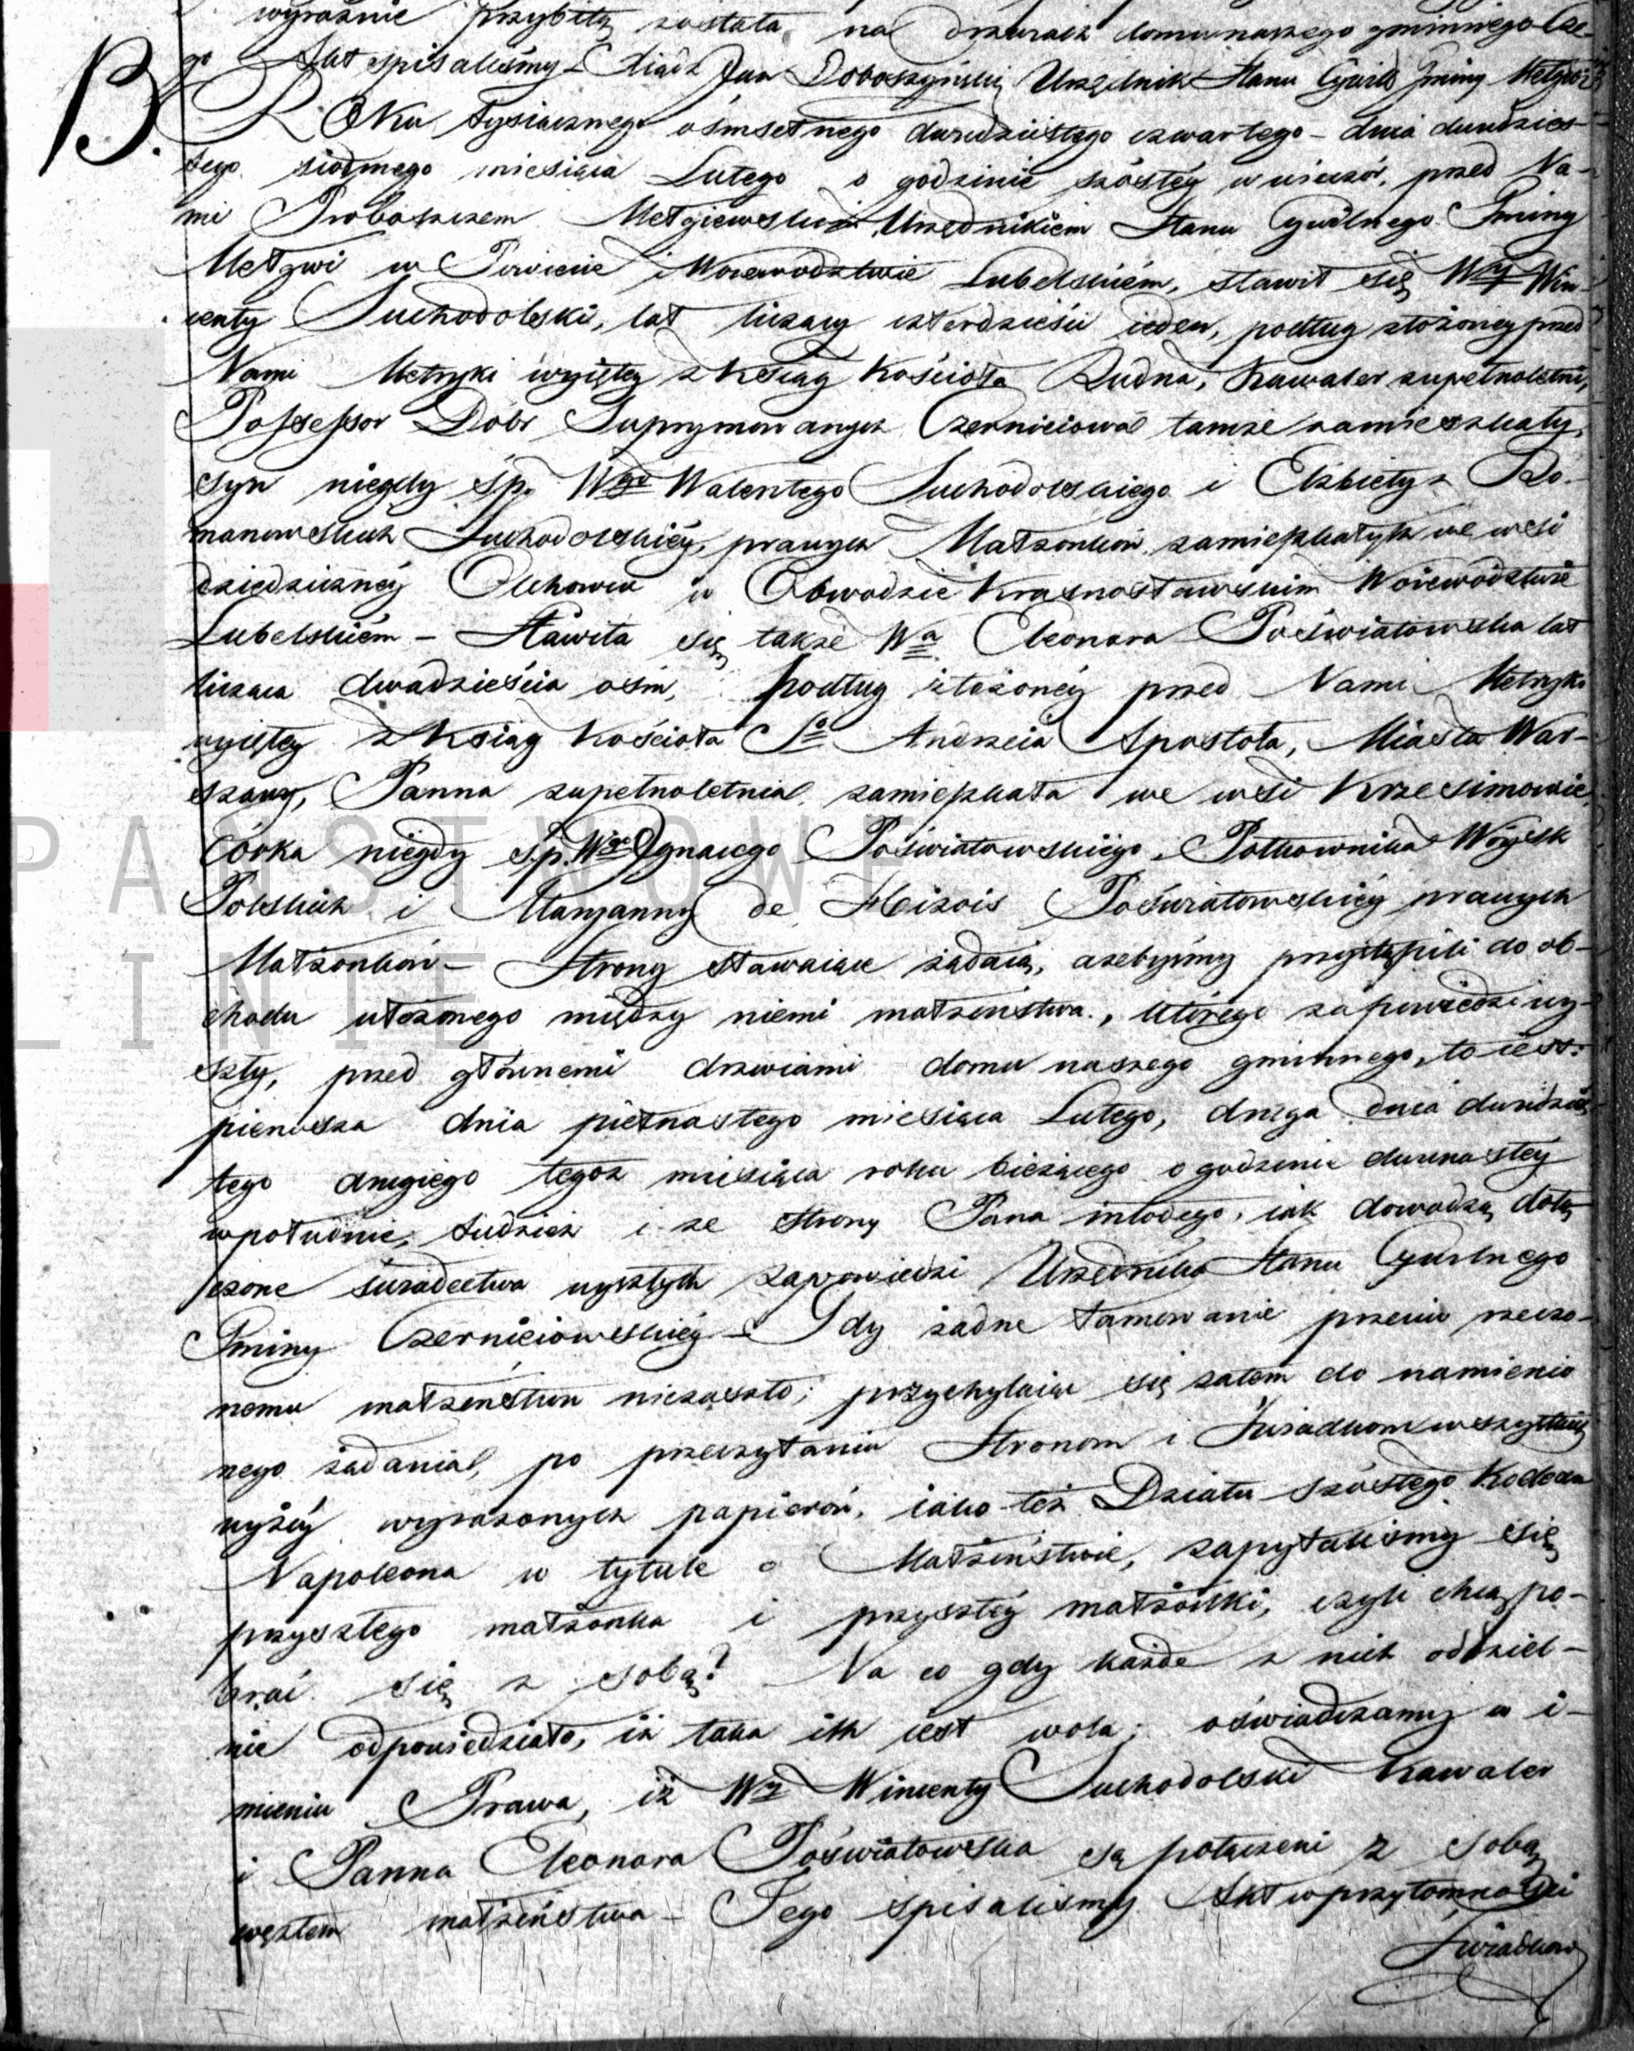 wyraźnie przybitą została na drzwiach domu naszego gminnego Cze-
go Akt spisaliśmy – Xiądz Jan Doboszyński Urzędnik Stanu Cywil: Gminy Mełgwi
13. ROku tysiącznego ośmsetnego dwudziestego czwartego – dnia dwudzies-
tego siódmego miesiąca Lutego o godzinie szóstéy w wieczór, przed Na-
mi Proboszczem Mełgiewskim Urzędnikiem Stanu Cywilnego Gminy
Mełgwi w Powiecie i Woiewodztwie Lubelskiém, stawił się Wy Win-
centy Suchodolski, lat liczący czterdzieści ieden, podług złożoney przed
Nami Metryki wyiętey z Ksiąg Kościoła Rudna, Kawaler zupełnoletni,
Possessor Dóbr Suprymowanych Czerniciowa tamże zamieszkały,
syn niegdy śp. Wgo Walentego Suchodolskiego i Elżbiety z Ro-
manowskich Suchodolskiéy, prawych Małżonków zamieszkałych we wsi
dziedziczney Olchowcu w Obwodzie Krasnostawskim Woiewodztwie
Lubelskiém – Stawiła się także Wa Eleonora Poświatowska lat
licząca dwadzieścia ośm, podług złożonéy przed Nami Metryki
wyiętey z Ksiąg Kościoła So Andrzeia Apostoła, Miasta War-
szawy, Panna zupełnoletnia zamieszkała we wsi Krzesimowie
córka niegdy śp. Wgo Ignacego Poświatowskiégo Półkownika Woysk
Polskich i Maryanny de Poświatowskiéy prawych
Małżonków – Strony stawaiące żądaią, ażebyśmy przystąpili do ob-
chodu ułożonego między niemi małżeństwa, którego zapowiedzi wy-
szły, przed głównemi drzwiami domu naszego gminnego, to iest:
pierwsza dnia piętnastego miesiąca Lutego, druga dnia dwudzies-
tego drugiego tegoż miesiąca roku bieżącego o godzinie dwunastey
w południe, tudzież i ze strony Pana młodego, iak dowodzą dołą-
czone świadectwa wyszłych zapowiedzi Urzędnika Stanu Cywilnego
Gminy Czerniciowskiéy – Gdy żadne tamowanie przeciw rzeczo-
nemu małżeństwu niezaszło; przychylaiąc się zatém do namienio
nego żądania, po przeczytaniu Stronom i Świadkom wszystkich
wyżéy wyrażonych papierów, iako też Działu szóstego Kodexu
Napoleona w tytule o Małżeństwie, zapytaliśmy się
przyszłego małżonka i przyszłéy małżonki, czyli chcą po-
brać się z sobą? Na co gdy każde z nich oddziel-
nie odpowiedziało, iż taka ich iest wola; oświadczamy w i-
mieniu Prawa, iż Wy Wincenty Suchodolski Kawaler
i Panna Eleonora Poświatowska są połączeni z sobą
węzłem małżeństwa – Tego spisaliśmy Akt w przytomności
Świadków
PAŃSTWOWE
LINE